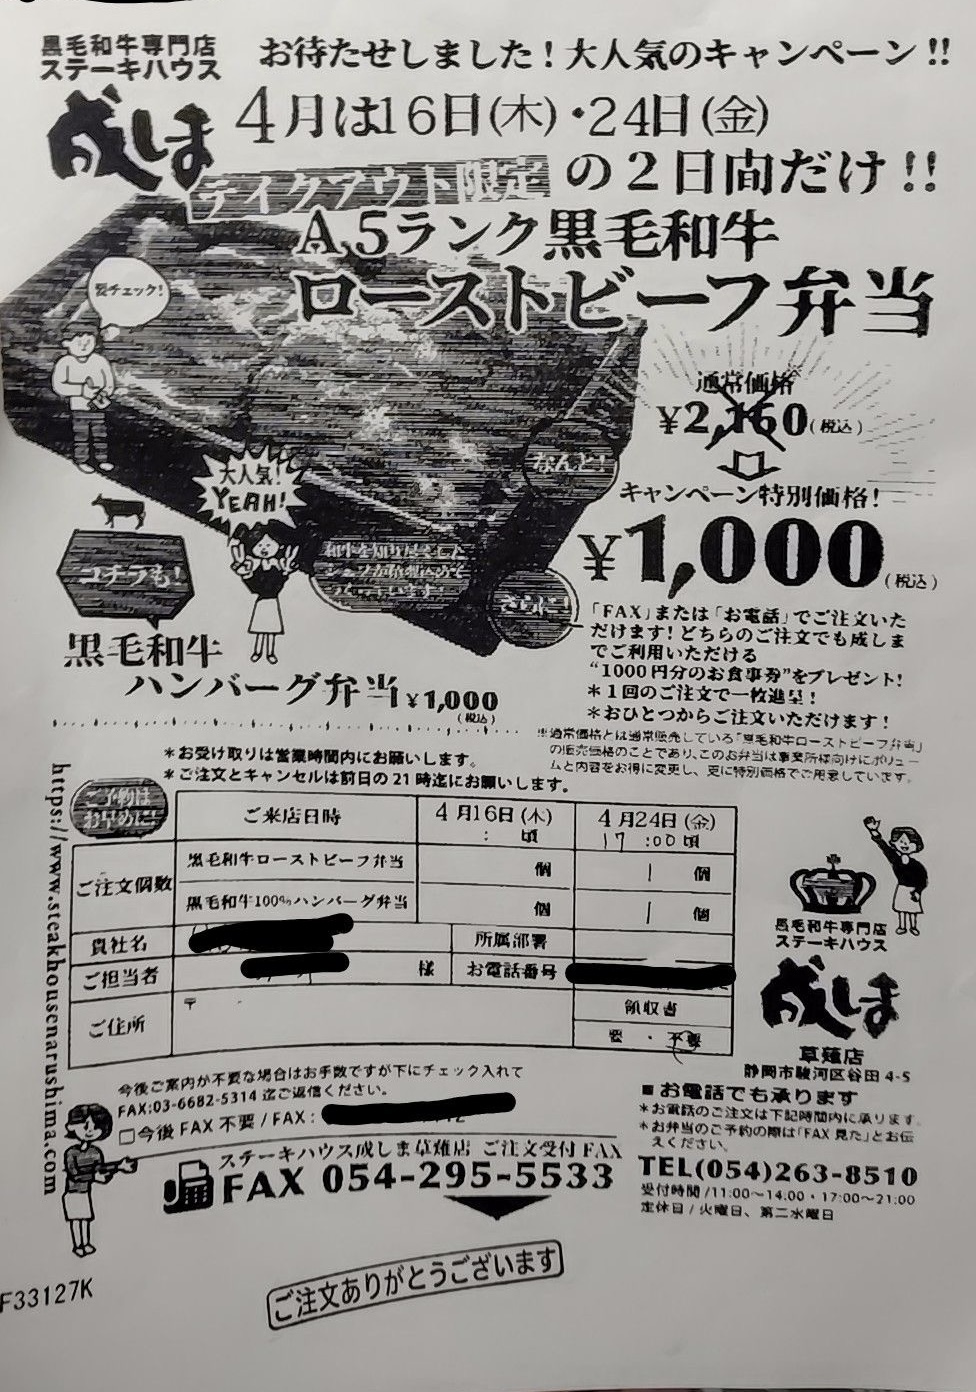 黒毛和牛専門店
ステーキハウス
成しま
お待たせしました！大人気のキャンペーン!!
4月は16日(木)・24日(金)
テイクアウト限定の2日間だけ!!
A5ランク黒毛和牛
ローストビーフ弁当
要チェック!
通常価格
¥2,160(税込)
なんと!
キャンペーン特別価格!
¥1,000(税込)
大人気!
YEAH!
コチラも!
黒毛和牛
ハンバーグ弁当¥1,000
(税込)
和牛を知り尽くした
さらに!
「FAX」または「お電話」でご注文いた
だけます！どちらのご注文でも成しま
でご利用いただける
"1000円分のお食事券"をプレゼント!
＊1回のご注文で一枚進呈！
＊おひとつからご注文いただけます！
※通常価格とは通常販売している「黒毛和牛ローストビーフ弁当」
の販売価格のことであり、このお弁当は事業所様向けにボリュー
ムと内容をお得に変更し、更に特別価格でご用意しています。
＊お受け取りは営業時間内にお願いします。
＊ご注文とキャンセルは前日の21時迄にお願いします。
ご予約は
お早めに!
ご来店日時 4月16日(木) : 頃 4月24日(金) 17:00頃
ご注文個数
黒毛和牛ローストビーフ弁当 個 1 個
黒毛和牛100%ハンバーグ弁当 個 1 個
貴社名 所属部署
ご担当者 様 お電話番号
ご住所 〒 領収書
要・不要
https://www.steakhousenarushima.com
黒毛和牛専門店
ステーキハウス
成しま
草薙店
静岡市駿河区谷田4-5
今後ご案内が不要な場合はお手数ですが下にチェック入れて
FAX:03-6682-5314迄ご返信ください。
□今後FAX不要/FAX:
■お電話でも承ります
＊お電話のご注文は下記時間内に承ります。
＊お弁当のご予約の際は「FAX見た」とお伝
えください。
TEL(054)263-8510
受付時間/11:00〜14:00・17:00〜21:00
定休日/火曜日、第二水曜日
ステーキハウス成しま草薙店 ご注文受付FAX
FAX 054-295-5533
ご注文ありがとうございます
F33127K